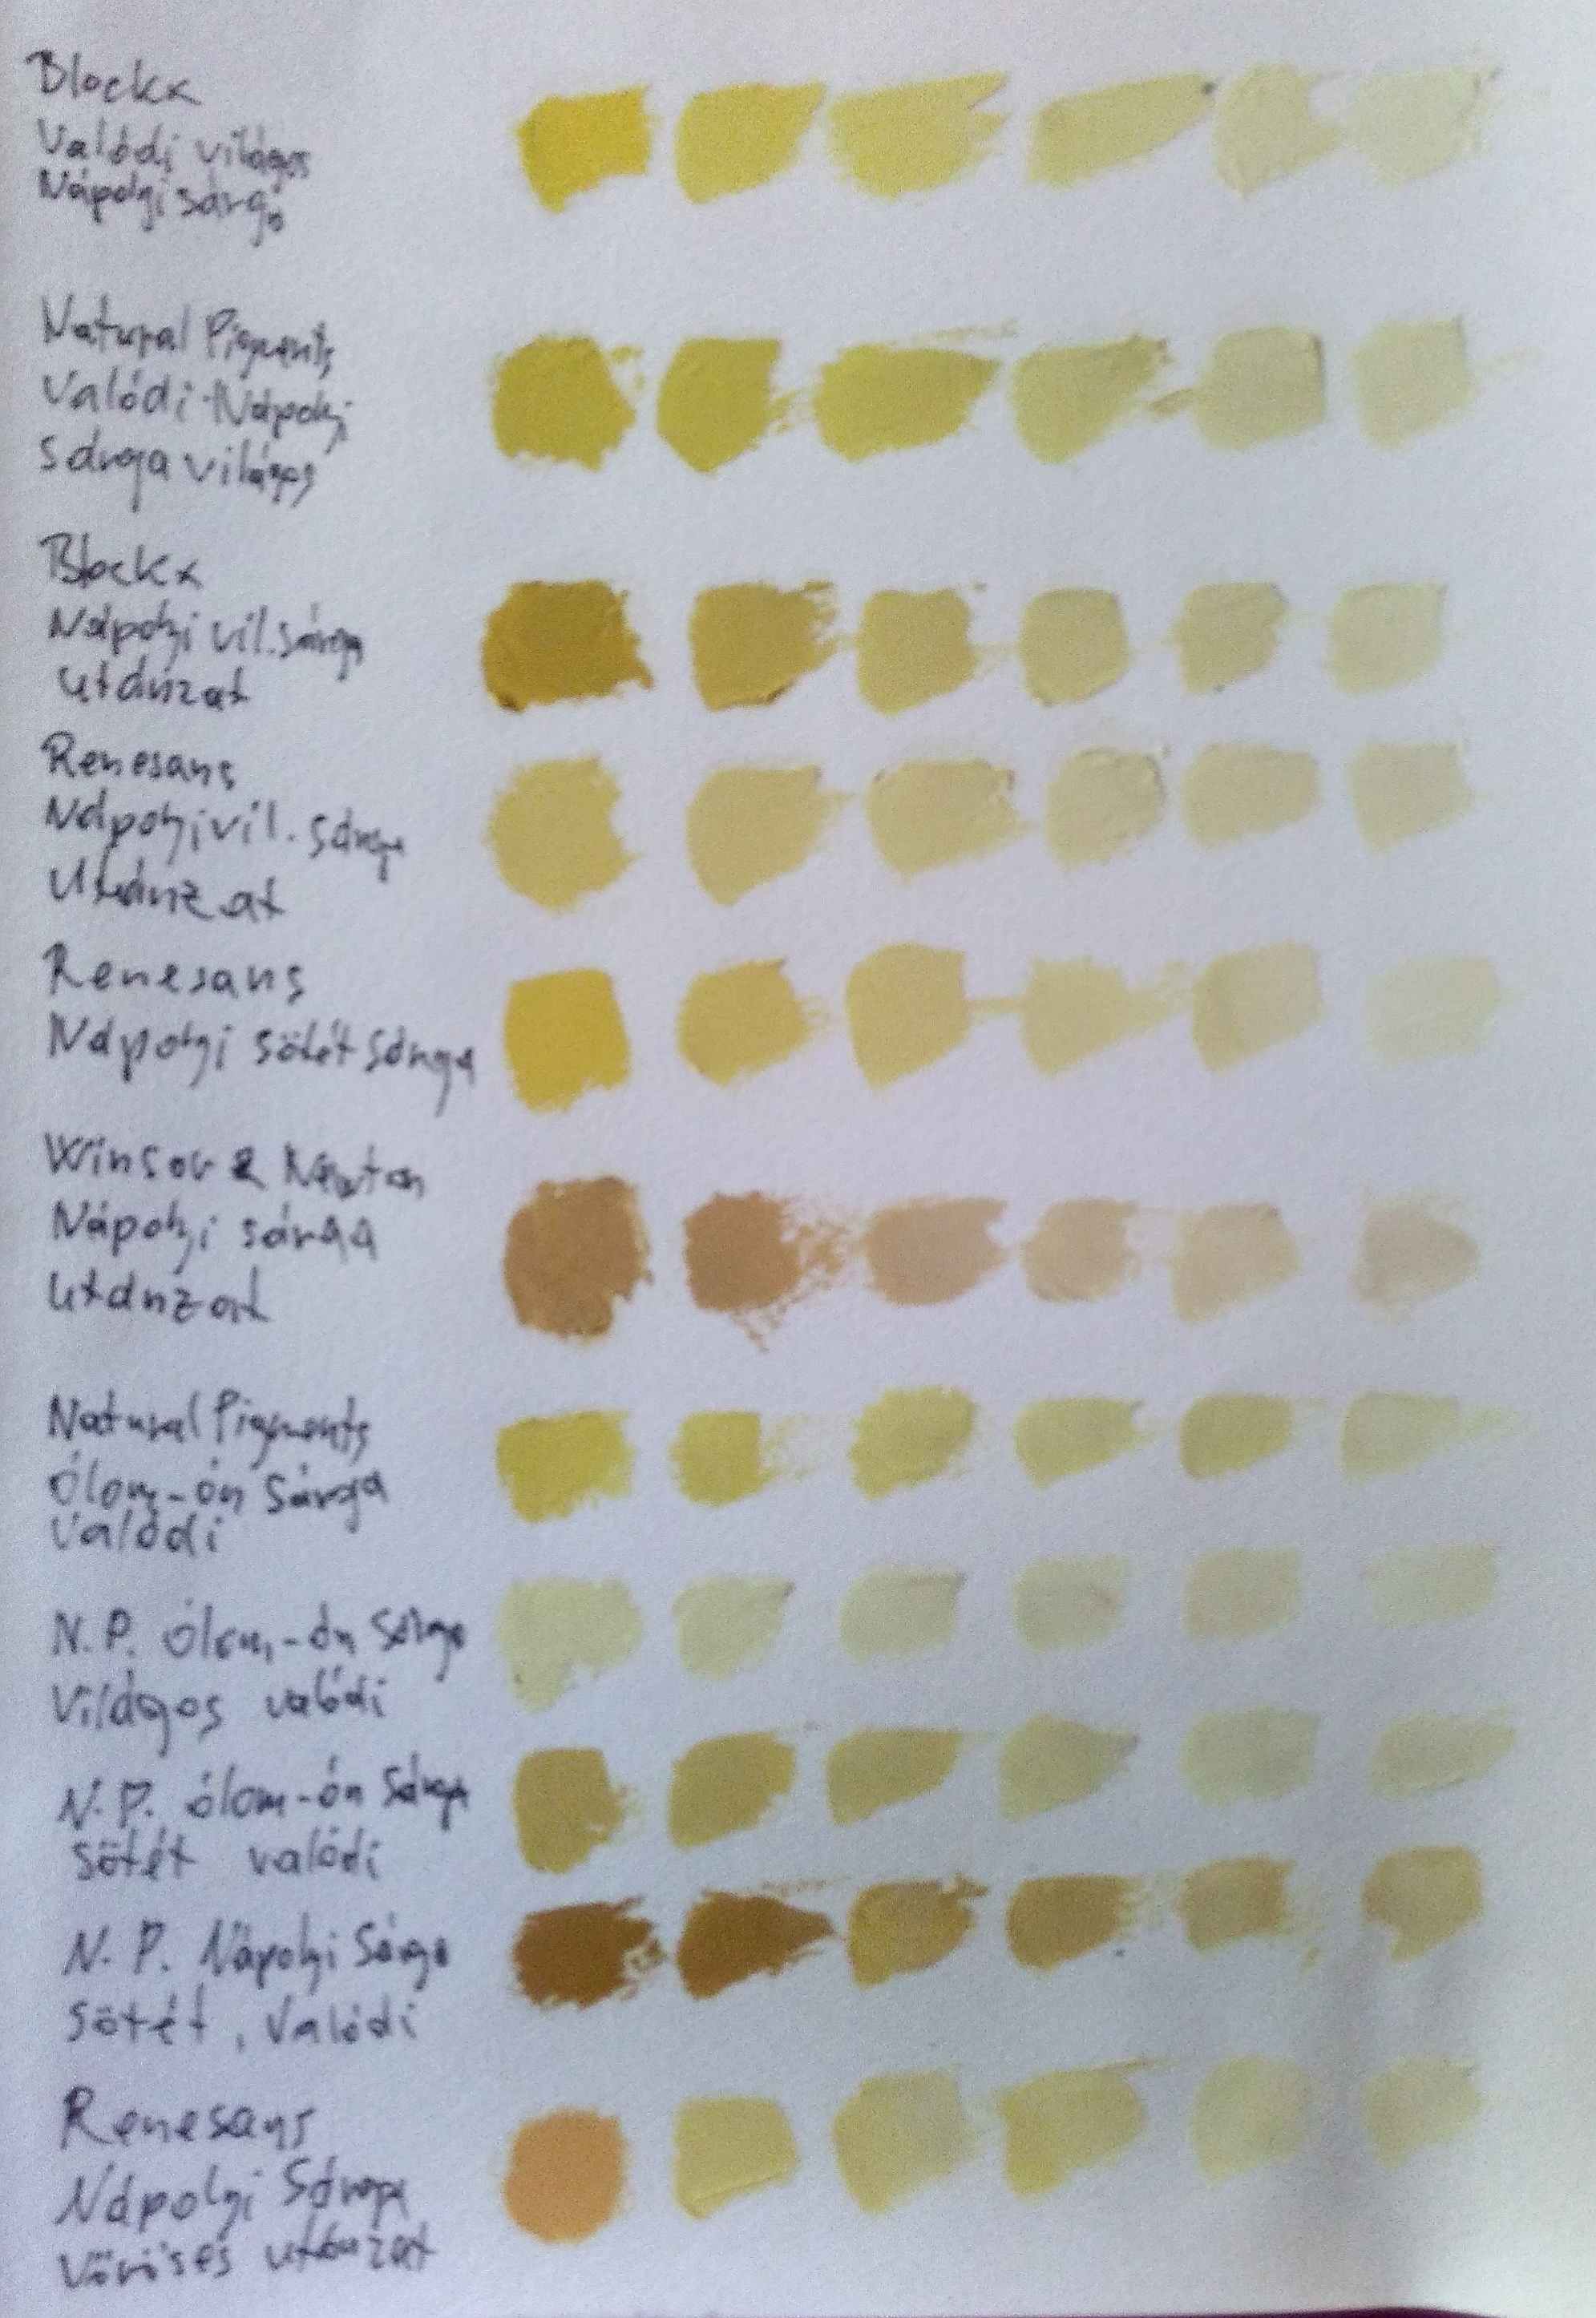 Blockx
Valódi világos
Nápolyi sárga
Natural Pigments
Valódi Nápolyi
Sárga világos
Blockx
Nápolyi vil. sárga
utánzat
Renesans
Nápolyi vil. sárga
Utánzat
Renesans
Nápolyi sötét sárga
Winsor & Newton
Nápolyi sárga
utánzat
Natural Pigments
Ólom-ón Sárga
Valódi
N.P. Ólom-ón Sárga
Világos valódi
N.P. ólom-ón Sárga
Sötét valódi
N.P. Nápolyi Sárga
Sötét, Valódi
Renesans
Nápolyi Sárga
Vöröses utánzat